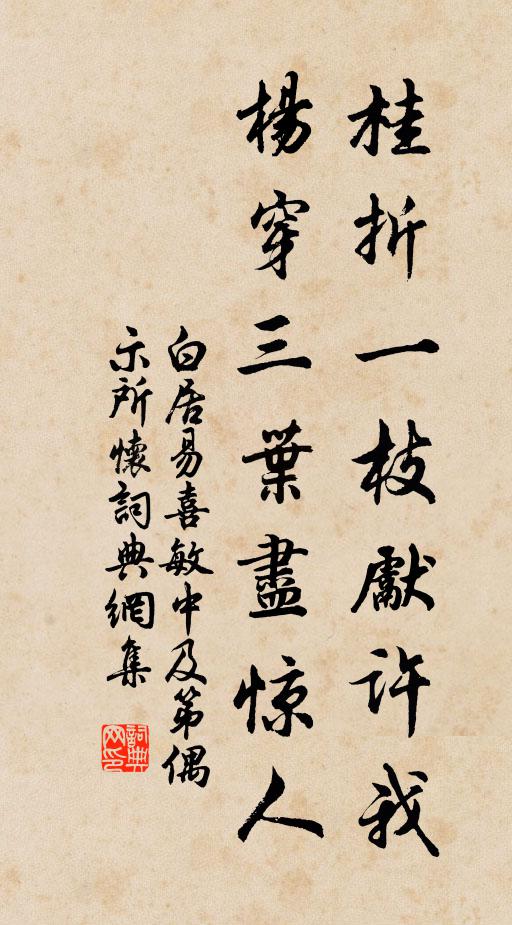 桂折一枝獻許我
楊穿三葉盡惊人
白居易喜敏中及第偶
示所懷詞典網集
詞典
网印